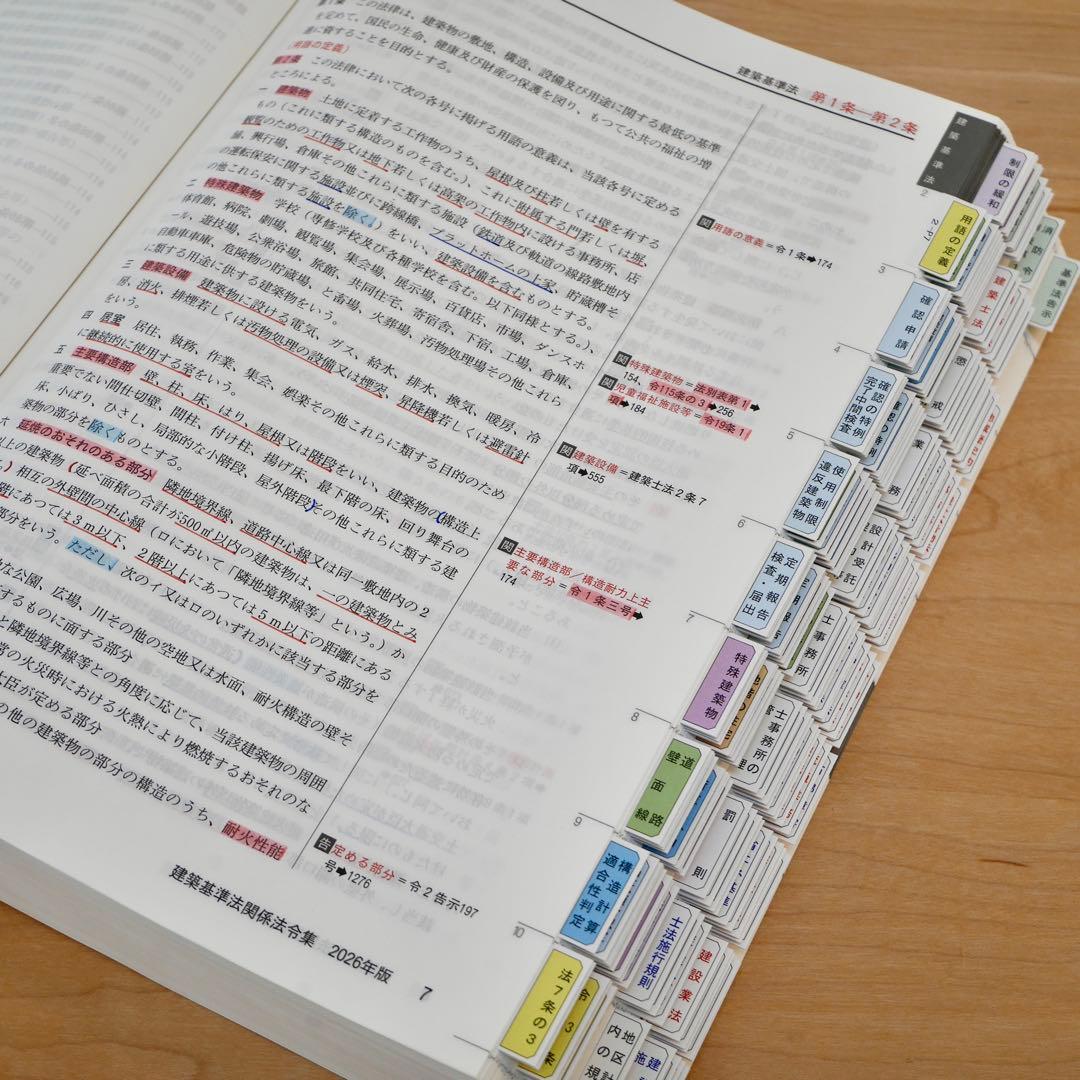 建築基準法 第1条―第2条
第1条 この法律は、建築物の敷地、構造、設備及び用途に関する最低の基準
を定めて、国民の生命、健康及び財産の保護を図り、もつて公共の福祉の増
進に資することを目的とする。
(用語の定義)
第2条 この法律において次の各号に掲げる用語の意義は、当該各号に定める
ところによる。
一 建築物 土地に定着する工作物のうち、屋根及び柱若しくは壁を有する
もの(これに類する構造のものを含む。)、これに附属する門若しくは塀、
観覧のための工作物又は地下若しくは高架の工作物内に設ける事務所、店
舗、興行場、倉庫その他これらに類する施設(鉄道及び軌道の線路敷地内
の運転保安に関する施設並びに跨線橋、プラットホームの上家、貯蔵槽そ
の他これらに類する施設を除く。)をいい、建築設備を含むものとする。
二 特殊建築物 学校(専修学校及び各種学校を含む。以下同様とする。)、
体育館、病院、劇場、観覧場、集会場、展示場、百貨店、市場、ダンスホ
ール、遊技場、公衆浴場、旅館、共同住宅、寄宿舎、下宿、工場、倉庫、
自動車車庫、危険物の貯蔵場、と畜場、火葬場、汚物処理場その他これら
に類する用途に供する建築物をいう。
三 建築設備 建築物に設ける電気、ガス、給水、排水、換気、暖房、冷
房、消火、排煙若しくは汚物処理の設備又は煙突、昇降機若しくは避雷針
をいう。
四 居室 居住、執務、作業、集会、娯楽その他これらに類する目的のため
に継続的に使用する室をいう。
五 主要構造部 壁、柱、床、はり、屋根又は階段をいい、建築物の構造上
重要でない間仕切壁、間柱、付け柱、揚げ床、最下階の床、回り舞台の
床、小ばり、ひさし、局部的な小階段、屋外階段その他これらに類する建
築物の部分を除くものとする。
六 延焼のおそれのある部分 隣地境界線、道路中心線又は同一敷地内の2
以上の建築物(延べ面積の合計が500㎡以内の建築物は、一の建築物とみ
)相互の外壁間の中心線(ロにおいて「隣地境界線等」という。)か
階にあつては3m以下、2階以上にあつては5m以下の距離にある
部分をいう。ただし、次のイ又はロのいずれかに該当する部分を
な公園、広場、川その他の空地又は水面、耐火構造の壁そ
するものに面する部分
と隣地境界線等との角度に応じて、当該建築物の周囲
常の火災時における火熱により燃焼するおそれのな
大臣が定める部分
の他の建築物の部分の構造のうち、耐火性能
関 用語の意義=令1条➡174
関 特殊建築物=法別表第1➡
154、令115条の3➡256
関 児童福祉施設等=令19条1
項➡184
関 建築設備=建築士法2条7
項➡555
関 主要構造部/構造耐力上主
要な部分=令1条三号➡
174
告 定める部分=令2告示197
号➡1276
建築基準法関係法令集 2026年版 7
建築基準法
2
3
4
5
6
7
8
9
10
用語の定義
2-P7
確認申請
確認の特例
完了中間検査
使用制限
違反建築物
定期報告
検査・届出
特殊建築物
道路
壁面線
構造計算
適合性判定
法7条の3
制限の緩和
消防令
基準法告示
建築士法
懲戒
業務
設計受託
士事務所
士事務所の
罰則
士法施行規則
建設業法